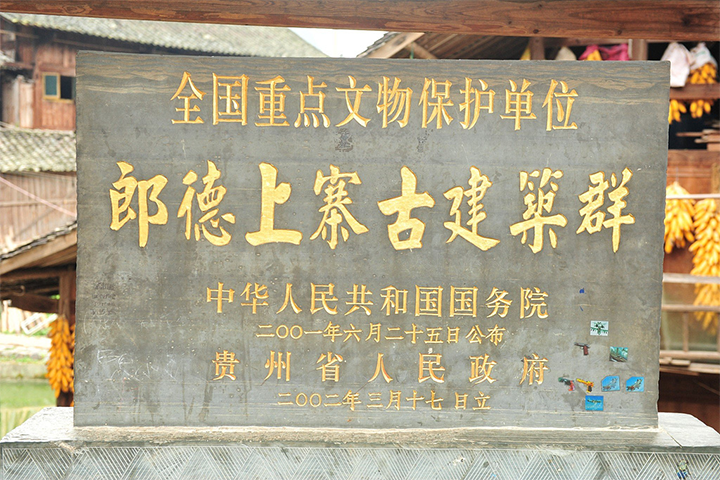 全国重点文物保护单位
郎德上寨古建築群
中华人民共和国国务院
二〇〇一年六月二十五日公布
贵州省人民政府
二〇〇二年三月十七日立